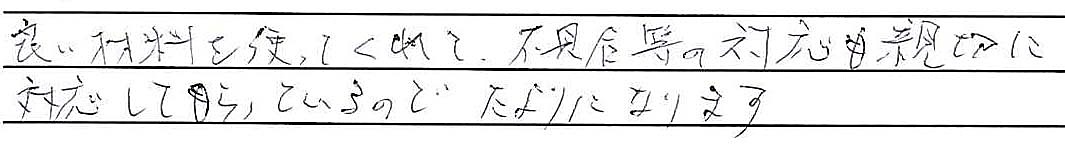 良い材料を使ってくれて、不具合等の対応も親切に
対応して貰っているので たよりになります